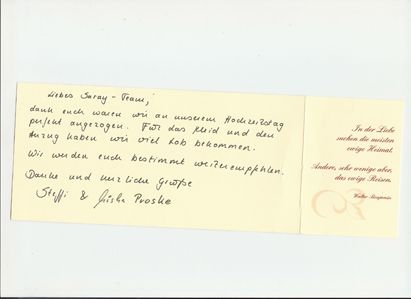 Liebes Saray-Team,
dank euch waren wir an unserem Hochzeitstag
perfekt angezogen. Für das Kleid und den
Anzug haben wir viel Lob bekommen.
Wir werden euch bestimmt weiterempfehlen.
Danke und herzliche Grüße
Steffi & Mischa Proske
In der Liebe
suchen die meisten
ewige Heimat.
Andere, sehr wenige aber,
das ewige Reisen.
Walter Benjamin